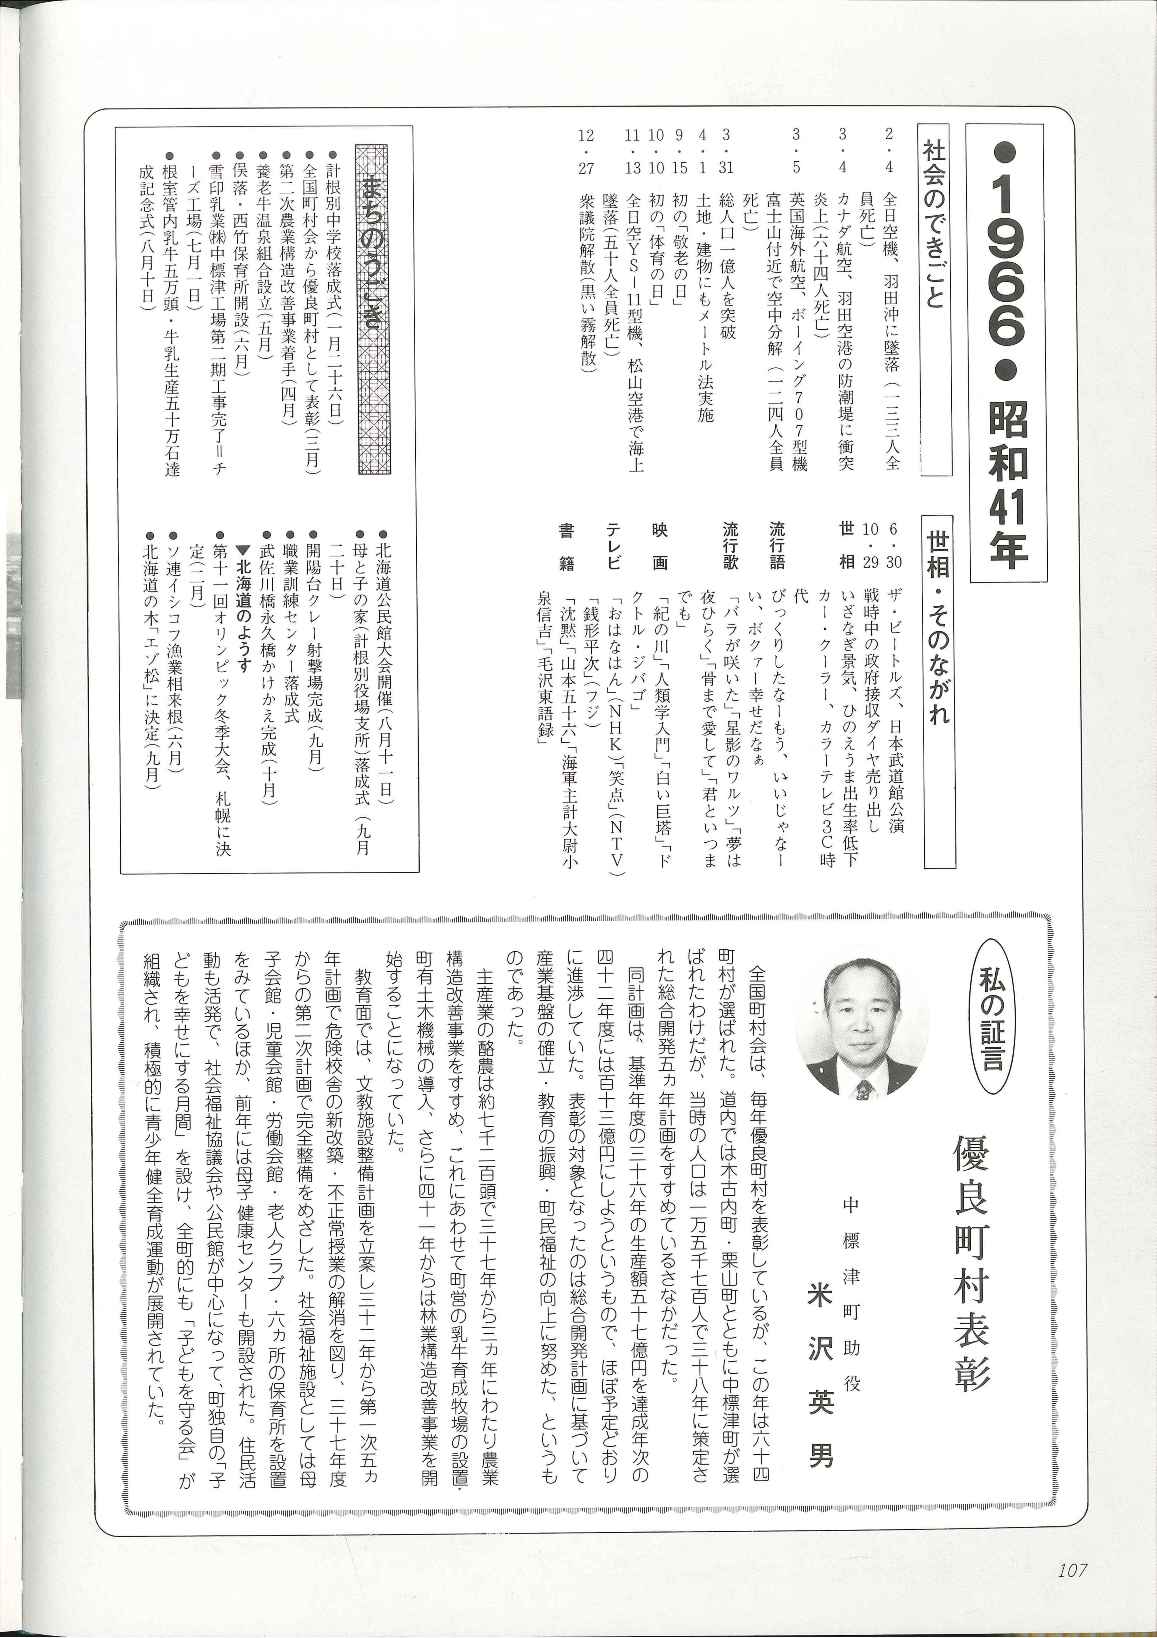 ●1966●昭和41年
社会のできごと
2・4　全日空機、羽田沖に墜落（一三三人全
員死亡）
3・4　カナダ航空、羽田空港の防潮堤に衝突
炎上（六十四人死亡）
3・5　英国海外航空、ボーイング707型機
富士山付近で空中分解（一二四人全員
死亡）
3・31　総人口一億人を突破
4・1　土地・建物にもメートル法実施
9・15　初の「敬老の日」
10・10　初の「体育の日」
11・13　全日空YS-11型機、松山空港で海上
墜落（五十人全員死亡）
12・27　衆議院解散（黒い霧解散）
世相・そのながれ
6・30　ザ・ビートルズ、日本武道館公演
10・29　戦時中の政府接収ダイヤ売り出し
世相　いざなぎ景気、ひのえうま出生率低下
カー・クーラー、カラーテレビ3C時
代
流行語　びっくりしたなーもう、いいじゃなー
い、ボクァー幸せだなぁ
流行歌　「バラが咲いた」「星影のワルツ」「夢は
夜ひらく」「骨まで愛して」「君といつま
でも」
映画　「紀の川」「人類学入門」「白い巨塔」「ド
クトル・ジバゴ」
テレビ　「おはなはん」（NHK）「笑点」（NTV）
「銭形平次」（フジ）
書籍　「沈黙」「山本五十六」「海軍主計大尉小
泉信吉」「毛沢東語録」
まちのうごき
●計根別中学校落成式（一月二十六日）
●全国町村会から優良町村として表彰（三月）
●第二次農業構造改善事業着手（四月）
●養老牛温泉組合設立（五月）
●俣落・西竹保育所開設（六月）
●雪印乳業㈱中標津工場第二期工事完了＝チ
ーズ工場（七月一日）
●根室管内乳牛五万頭・牛乳生産五十万石達
成記念式（八月十日）
●北海道公民館大会開催（八月十一日）
●母と子の家（計根別役場支所）落成式（九月
二十日）
●開陽台クレー射撃場完成（九月）
●職業訓練センター落成式
●武佐川橋永久橋かけかえ完成（十月）
▼北海道のようす
●第十一回オリンピック冬季大会、札幌に決
定（二月）
●ソ連イシコフ漁業相来根（六月）
●北海道の木「エゾ松」に決定（九月）
私の証言
優良町村表彰
中標津町助役
米沢英男
全国町村会は、毎年優良町村を表彰しているが、この年は六十四
町村が選ばれた。道内では木古内町・栗山町とともに中標津町が選
ばれたわけだが、当時の人口は一万五千七百人で三十八年に策定さ
れた総合開発五ヵ年計画をすすめているさなかだった。
同計画は、基準年度の三十六年の生産額五十七億円を達成年次の
四十二年度には百十三億円にしようというもので、ほぼ予定どおり
に進渉していた。表彰の対象となったのは総合開発計画に基づいて
産業基盤の確立・教育の振興・町民福祉の向上に努めた、というも
のであった。
主産業の酪農は約七千二百頭で三十七年から三ヵ年にわたり農業
構造改善事業をすすめ、これにあわせて町営の乳牛育成牧場の設置・
町有土木機械の導入、さらに四十一年からは林業構造改善事業を開
始することになっていた。
教育面では、文教施設整備計画を立案し三十二年から第一次五ヵ
年計画で危険校舎の新改築・不正常授業の解消を図り、三十七年度
からの第二次計画で完全整備をめざした。社会福祉施設としては母
子会館・児童会館・労働会館・老人クラブ・六ヵ所の保育所を設置
をみているほか、前年には母子健康センターも開設された。住民活
動も活発で、社会福祉協議会や公民館が中心になって、町独自の「子
どもを幸せにする月間」を設け、全町的にも「子どもを守る会」が
組織され、積極的に青少年健全育成運動が展開されていた。
107